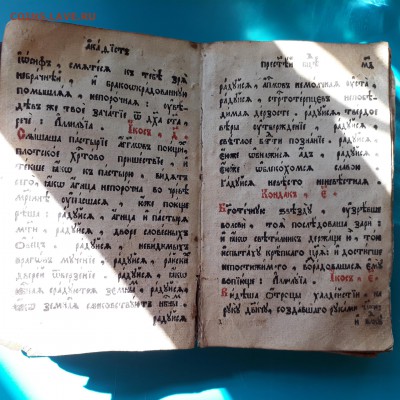 акаѳістъ
іѡсифъ , смѧтесѧ къ тебѣ зрѧ
небрачнѣй , и бракоѡкрадованную
помышлѧѧ , непорочнаѧ : оувѣ
дѣвъ же твое зачатїе ѿ дха ста
рече : Аллилуїа . Ікосъ , д҃ .
Слышаша пастырїе аг҃гломъ поющимъ
плотское хр҃тово пришествїе , и
текше ꙗкѡ къ пастырю видѧтъ
сего , ꙗкѡ агнца непорочна во чревѣ
мр҃їинѣ оупасшасѧ юже поюще
рѣша : радуйсѧ , агнца и пастырѧ
мт҃и , радуйсѧ , дворе словесныхъ
Овецъ , радуйсѧ , невидимыхъ
врагѡмъ мученїе , радуйсѧ , райскихъ
дверей ѿверзенїе , радуйсѧ , ꙗкѡ
нб҃наѧ срадуютсѧ земнымъ , радуйсѧ ,
ꙗкѡ земнаѧ
радуйсѧ
прест҃ѣй бц҃ѣ
радуйсѧ , ап҃сломъ немолчнаѧ оуста ,
радуйсѧ , стр҃тотерпцевъ непобѣ
димаѧ дерзосте , радуйсѧ , твердое
вѣры оутвержденїе , радуйсѧ ,
свѣтлое бл҃годати познанїе , радуйсѧ ,
еюже ѡбнажисѧ адъ , радуйсѧ ,
еюже ѡблекохомсѧ славою
Радуйсѧ невѣсто неневѣстнаѧ
Кондакъ , є҃ .
Бг҃отечную звѣзду , оузрѣвше
волсви , тоѧ послѣдоваша зари :
и ꙗкѡ свѣтилникъ держаще и , тою
испытаху крѣпкаго цр҃ѧ : и достигше
непостижимаго , возрадовашасѧ ему
вопїюще : Аллилуїа . Ікосъ , є҃ .
Видѣша ѻтроцы халдейстїи , на
руку дв҃чу , создавшаго руками